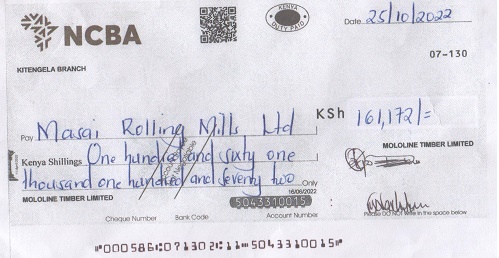 NCBA
KENYA
DUTY PAID
Date 25/10/2022
07-130
KITENGELA BRANCH
Pay Masai Rolling Mills Ltd KSh 161,172/=
Kenya Shillings One hundred and sixty one
thousand one hundred and seventy two Only
MOLOLINE TIMBER LIMITED
16/06/2022
MOLOLINE TIMBER LIMITED
5043310015
Cheque Number Bank Code Account Number
Please DO NOT write in the space below
"000586⑆07130 2⑆11⑉5043310015"